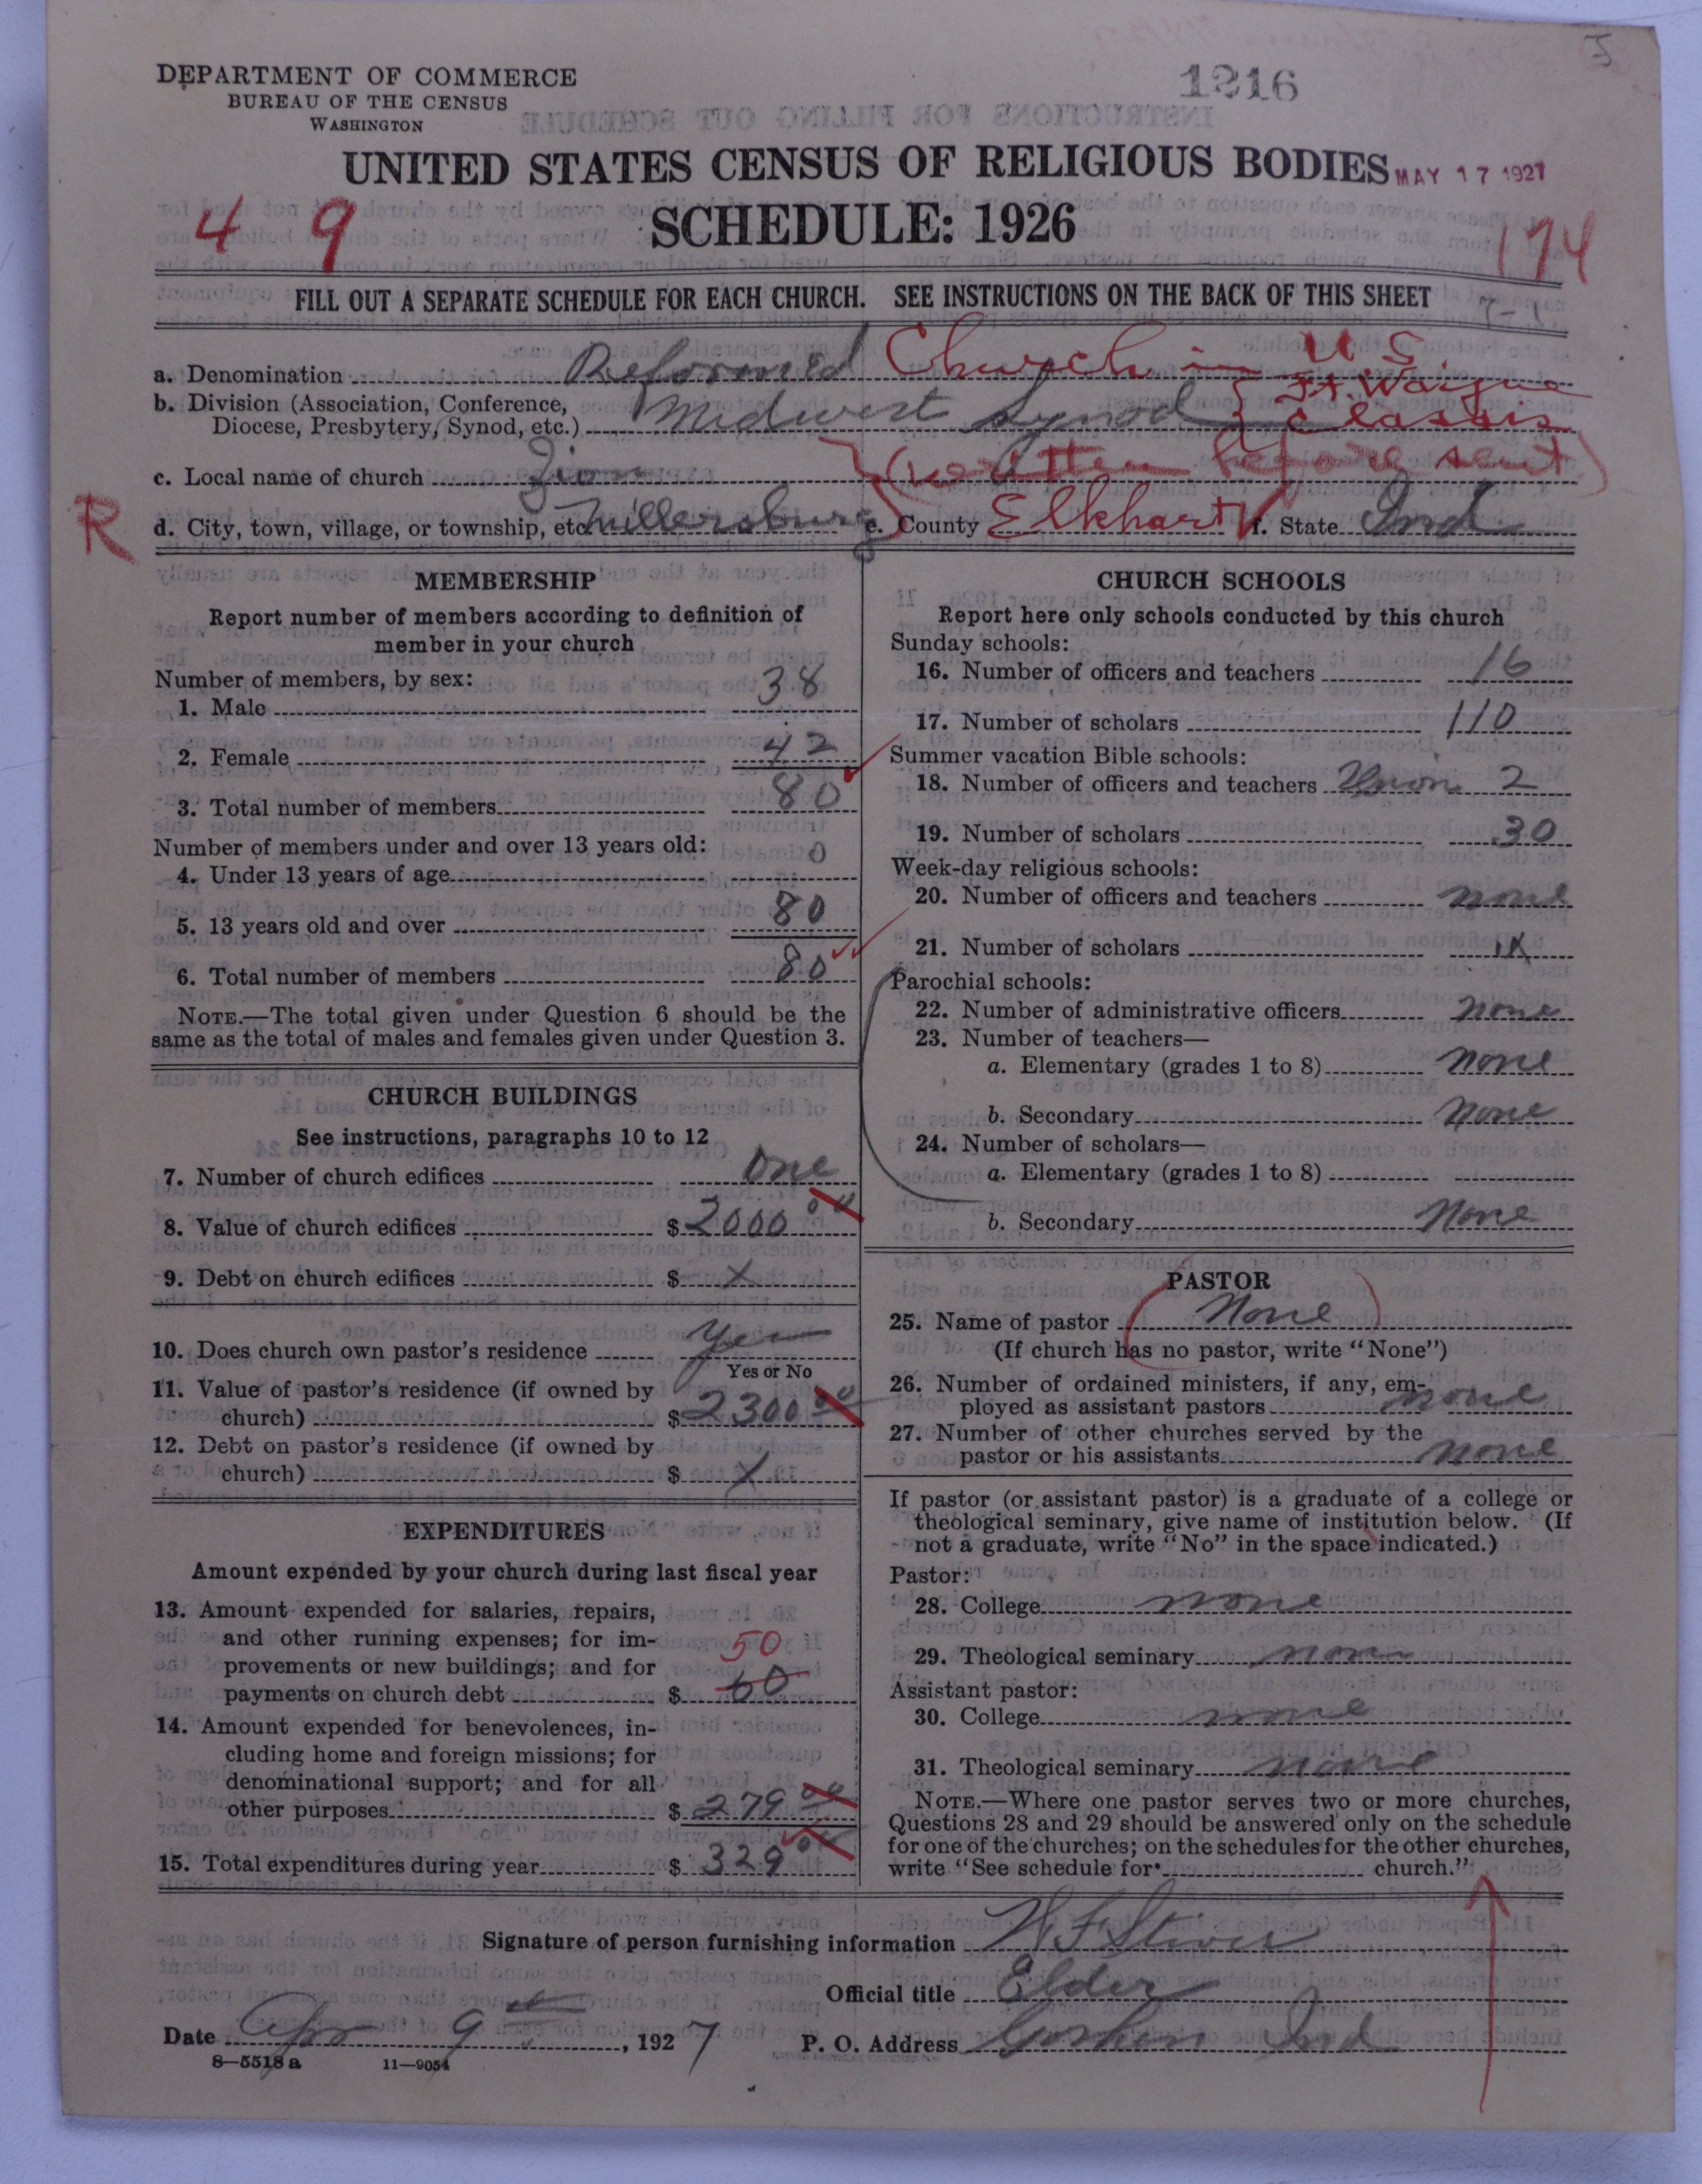 1216
DEPARTMENT OF COMMERCE
BUREAU OF THE CENSUS
WASHINGTON
UNITED STATES CENSUS OF RELIGIOUS BODIES
MAY 17 1927
4 9
SCHEDULE: 1926
174
FILL OUT A SEPARATE SCHEDULE FOR EACH CHURCH. SEE INSTRUCTIONS ON THE BACK OF THIS SHEET
7-1
a. Denomination Reformed Church in U S
b. Division (Association, Conference, Diocese, Presbytery, Synod, etc.) Midwest Synod { Ft. Wayne Classis
(written before sent)
c. Local name of church Zion
R
d. City, town, village, or township, etc. Millersburg e. County Elkhart f. State Ind
MEMBERSHIP
Report number of members according to definition of
member in your church
Number of members, by sex:
1. Male 38
2. Female 42
3. Total number of members 80
Number of members under and over 13 years old:
4. Under 13 years of age 0
5. 13 years old and over 80
6. Total number of members 80
NOTE.—The total given under Question 6 should be the
same as the total of males and females given under Question 3.
CHURCH BUILDINGS
See instructions, paragraphs 10 to 12
7. Number of church edifices One
8. Value of church edifices $ 2000 00
9. Debt on church edifices $ X
10. Does church own pastor's residence Yes
Yes or No
11. Value of pastor's residence (if owned by
church) $ 2300 00
12. Debt on pastor's residence (if owned by
church) $ X
EXPENDITURES
Amount expended by your church during last fiscal year
13. Amount expended for salaries, repairs,
and other running expenses; for im-
provements or new buildings; and for
50
payments on church debt $ 60
14. Amount expended for benevolences, in-
cluding home and foreign missions; for
denominational support; and for all
other purposes $ 279 00
15. Total expenditures during year $ 329 00
CHURCH SCHOOLS
Report here only schools conducted by this church
Sunday schools:
16. Number of officers and teachers 16
17. Number of scholars 110
Summer vacation Bible schools:
18. Number of officers and teachers Union 2
19. Number of scholars 30
Week-day religious schools:
20. Number of officers and teachers none
21. Number of scholars
Parochial schools:
22. Number of administrative officers none
23. Number of teachers—
a. Elementary (grades 1 to 8) none
b. Secondary none
24. Number of scholars—
a. Elementary (grades 1 to 8)
b. Secondary none
PASTOR
25. Name of pastor None
(If church has no pastor, write "None")
26. Number of ordained ministers, if any, em-
ployed as assistant pastors none
27. Number of other churches served by the
pastor or his assistants none
If pastor (or assistant pastor) is a graduate of a college or
theological seminary, give name of institution below. (If
not a graduate, write "No" in the space indicated.)
Pastor:
28. College none
29. Theological seminary none
Assistant pastor:
30. College none
31. Theological seminary none
NOTE.—Where one pastor serves two or more churches,
Questions 28 and 29 should be answered only on the schedule
for one of the churches; on the schedules for the other churches,
write "See schedule for church."
Signature of person furnishing information W F Stiver
Official title Elder
Date Apr 9th, 1927 P. O. Address Goshen Ind
8—5518 a 11—9054